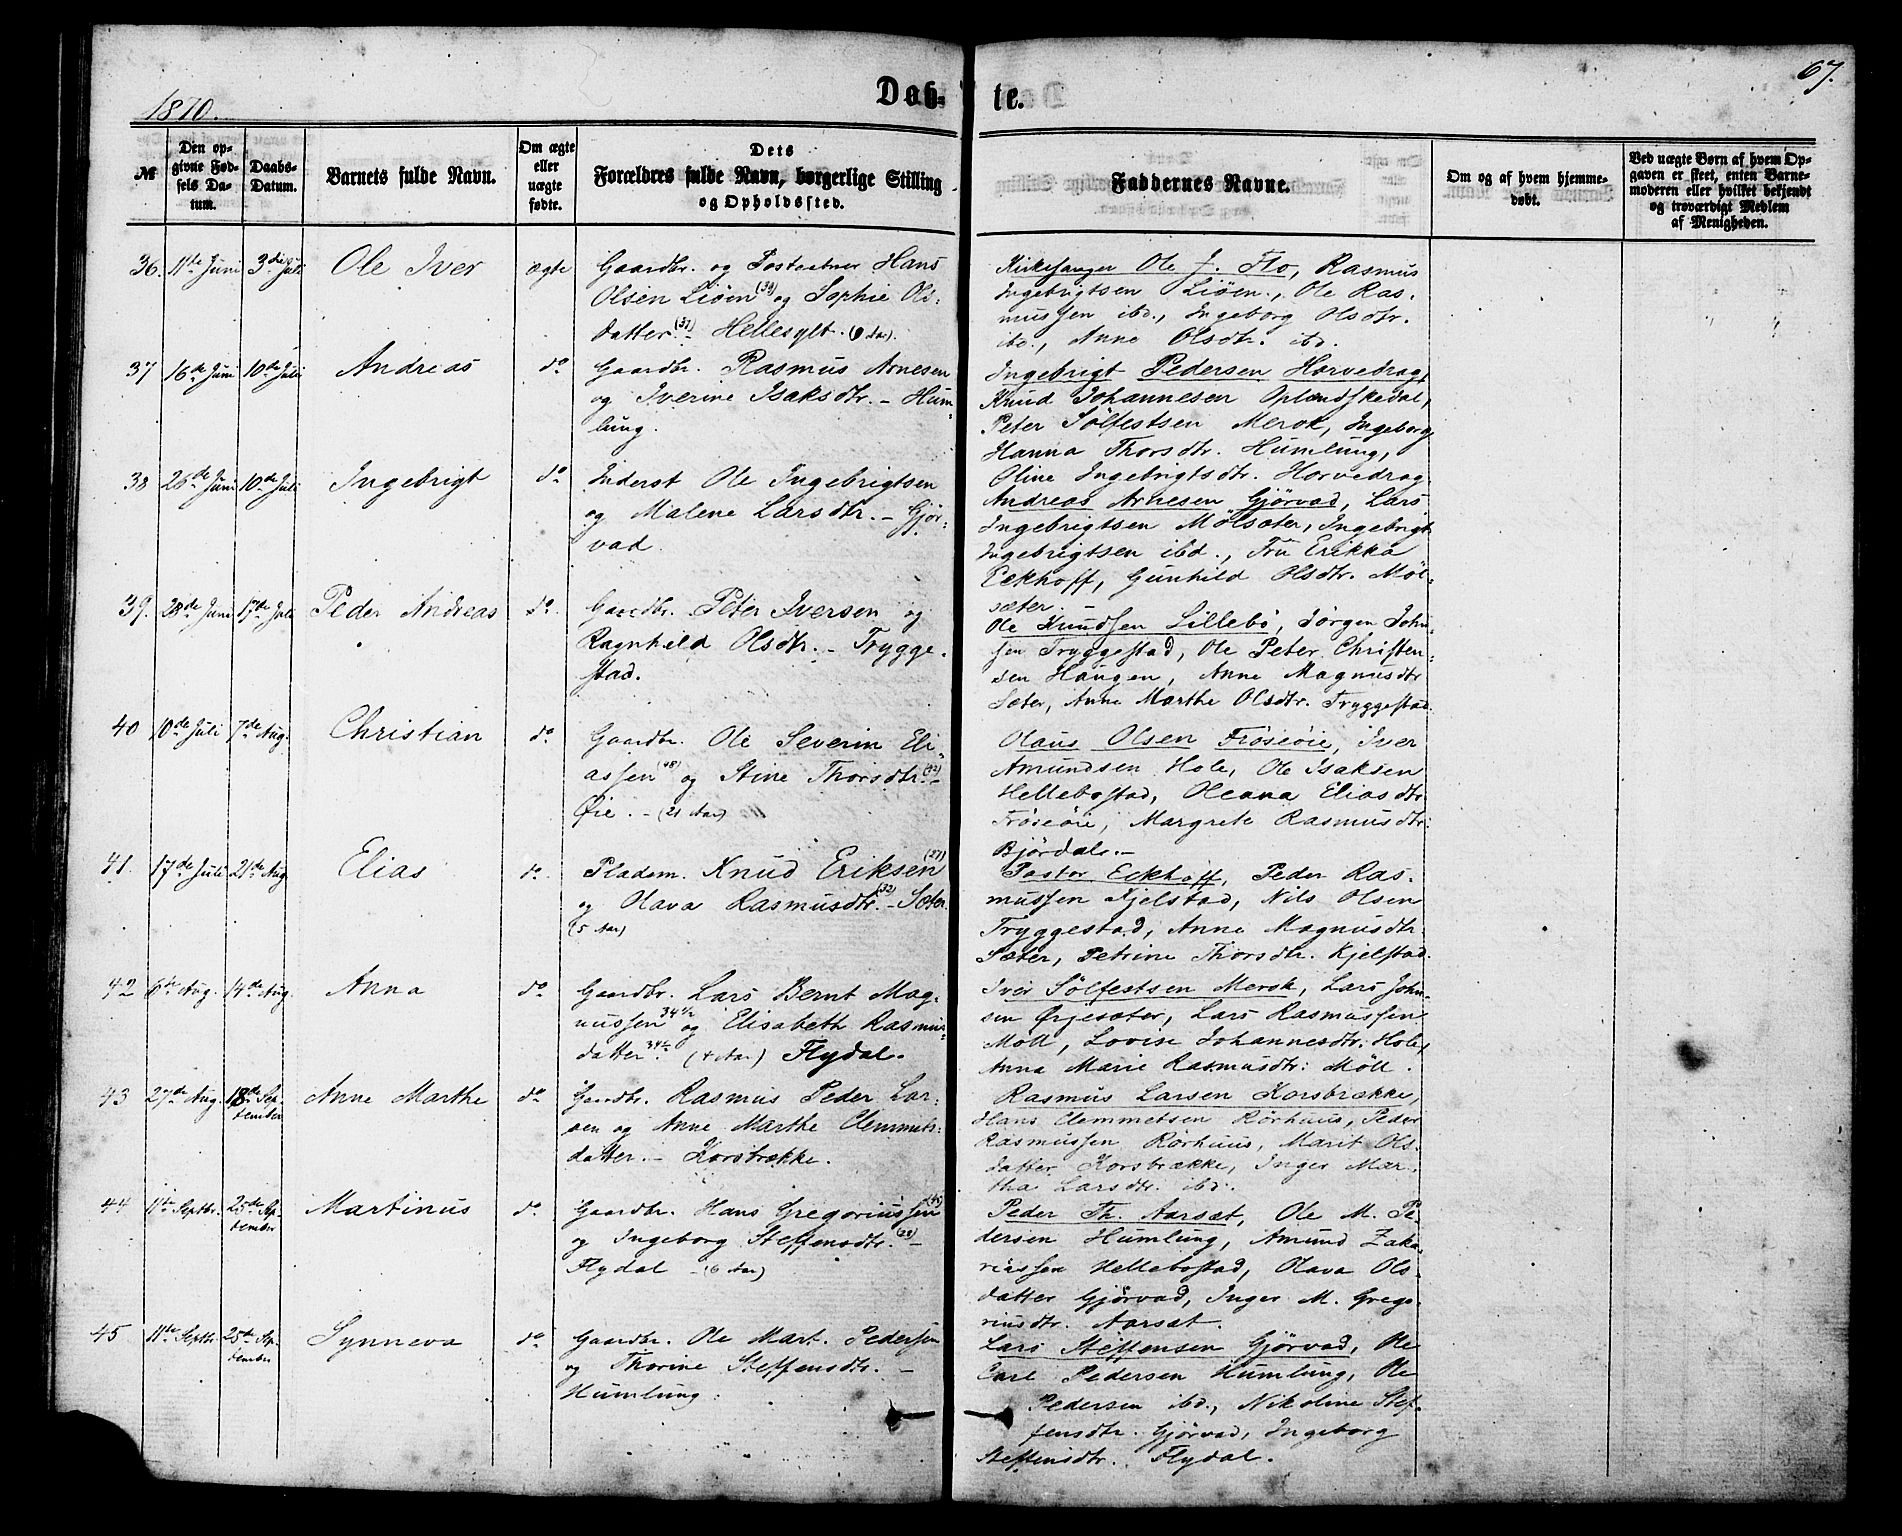 1870.
Døb-
te.
67.
№
Den op-
givne Fød-
sels Da-
tum.
Daabs-
Datum.
Barnets fulde Navn.
Om ægte
eller
uægte
fødte.
Dets
Forældres fulde Navn, borgerlige Stilling
og Opholdssted.
Faddernes Navne.
Om og af hvem hjemme-
døbt.
Ved uægte Børn af hvem Op-
gaven er skeet, enten Barne-
moderen eller hvilket bekjendt
og troværdigt Medlem
af Menigheden.
36. 11te Juni 3die Juli Ole Iver ægte
Gaardbr. og Postaabner Hans
Olsen Liøen (34) og Sophie Ols-
datter (37) - Hellesylt. (9 Aar).
Kirkesanger Ole J. Flo, Rasmus
Ingebrigtsen Liøen, Ole Ras-
mussen ibd., Ingeborg Olsdtr.
ibd., Anne Olsdtr. ibd.
37 16de Juni 10de Juli Andreas do
Gaardbr. Rasmus Arnesen
og Iverine Isaksdtr. - Hum-
lung.
Ingebrigt Pedersen Horvedrag,
Knud Johannesen Oplændskedal,
Peter Sölfestsen Merok, Ingeborg
Hanna Thorsdtr. Humlung,
Oline Ingebrigtsdtr. Horvedrag
38 26de Juni 10de Juli Ingebrigt do
Inderst Ole Ingebrigtsen
og Malene Larsdtr. - Gjör-
vad.
Andreas Arnesen Gjörvad, Lars
Ingebrigtsen Mölsæter, Ingebrigt
Ingebrigtsen ibd., Fru Erikka
Eckhoff, Gunhild Olsdtr. Möl-
sæter.
39. 28de Juni 17de Juli Peder Andreas do.
Gaardbr. Peter Iversen og
Ragnhild Olsdtr. - Trygge-
stad.
Ole Knudsen Lillebö, Jörgen John-
sen Tryggestad, Ole Peter Christen-
sen Haugen, Anne Magnusdtr
Sæter, Anne Marthe Olsdtr. Tryggestad.
40 10de Juli 7de Aug. Christian do
Gaardbr. Ole Severin Eli-
assen (48) og Stine Thorsdtr. (42) -
Øie. - (21 Aar)
Olaus Olsen Fröseöie, Iver
Amundsen Hole, Ole Isaksen
Hellebostad, Oleana Eliasdtr
Fröseöie, Margrete Rasmusdtr.
Björdal. -
41. 17de Juli 21de Aug Elias do.
Pladsm. Knud Eriksen (37)
og Olava Rasmusdtr. (32) - Sæter.
(5 Aar)
Pastor Eckhoff, Peder Ras-
mussen Kjelstad, Nils Olsen
Tryggestad, Anne Magnusdtr.
Sæter, Petrine Thorsdtr. Kjelstad.
42 6te Aug. 14de Aug. Anna do
Gaardbr. Lars Bernt Mag-
nussen 34 1/2 og Elisabeth Rasmus-
datter. 34 1/2 (4 Aar) Flydal.
Iver Sölfestsen Merok, Lars John-
sen Ørjesæter, Lars Rasmussen
Möll, Lovise Johannesdtr. Hole,
Anna Marie Rasmusdtr: Möll.
43 27de Aug. 18de Sep-
tember Anne Marthe do
Gaardbr. Rasmus Peder Lar-
sen og Anne Marthe Clemmets-
datter. - Korsbrække.
Rasmus Larsen Korsbrække,
Hans Clemmetsen Rörhuus, Peder
Rasmussen Rörhuus, Marit Ols-
datter Korsbrække, Inger Mar-
tha Larsdtr. ibd.
44 1te Septbr. 25de Sep-
tember Martinus do.
Gaardbr. Hans Gregoriussen
og Ingeborg Steffensdtr. (28) -
Flydal - (6 Aar)
Peder Th. Aarsæt, Ole M. Pe-
dersen Humlung, Amund Zaka-
riassen Hellebostad, Olava Ols-
datter Gjörvad, Inger M. Grego-
riusdtr. Aarsæt.
45 11te Septbr. 25de Sep-
tember Synneva do
Gaardbr. Ole Mart. Pedersen
og Thorine Steffensdtr. -
Humlung.
Lars Steffensen Gjörvad, Ole
Carl Pedersen Humlung, Ole
Pedersen ibd., Nikoline Stef-
fensdtr. Gjörvad, Ingeborg
Steffensdtr. Flydal.